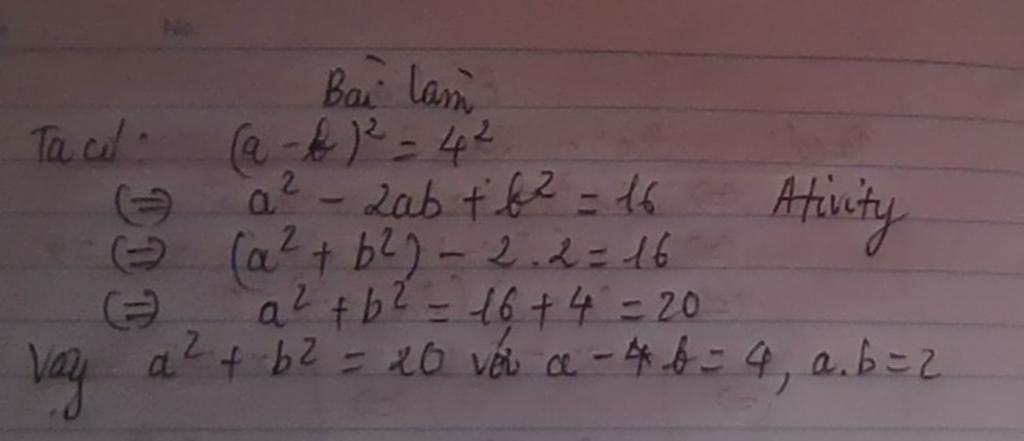 No.
Bài làm
Ta có: (a - b)² = 4²
(=) a² - 2ab + b² = 16 Ativity
(=) (a² + b²) - 2.2 = 16
(=) a² + b² = 16 + 4 = 20
Vậy a² + b² = 20 với a - b = 4, a.b = 2